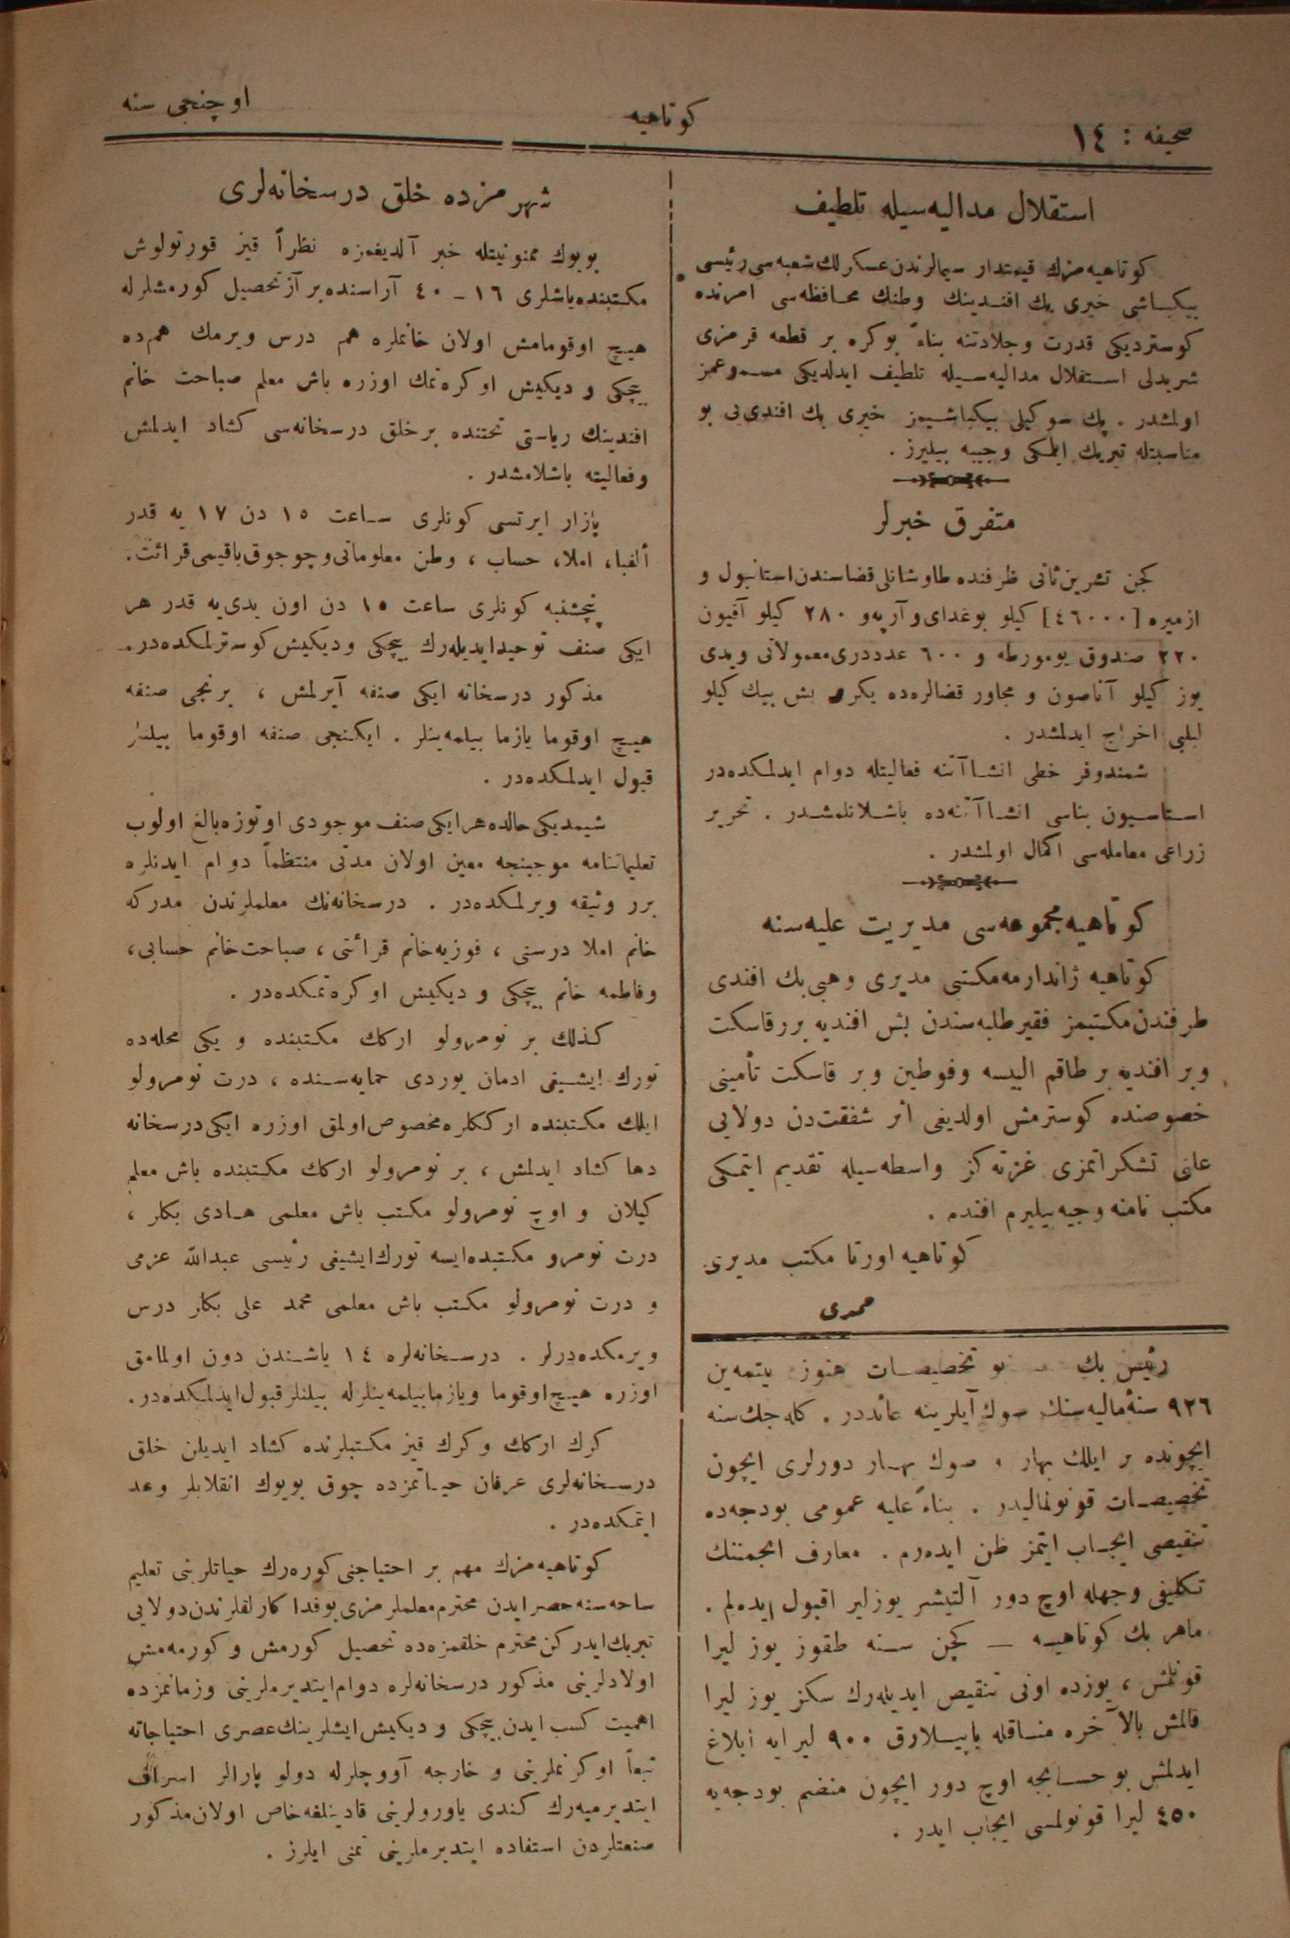 صحیفه : ١٤
كوتاهیه
اوچنجی سنه
استقلال مدالیه‌سیله تلطیف
كوتاهیه‌مزك قیمتدار سیمالرندن عسكرلك شعبه‌سی رئیسی
بیكباشی خیری بك افندینك وطنك محافظه‌سی امرنده
كوستردیكی قدرت وجلادتنه بناءً بوكره بر قطعه قرمزی
شریدلی استقلال مدالیه‌سیله تلطیف ایدلدیكی مسموعمز
اولمشدر . پك سوكیلی بیكباشیمز خیری بك افندی‌یی بو
مناسبتله تبریك ایلمكی وجیبه بیلیرز .
متفرق خبرلر
كچن تشرین‌ثانی ظرفنده طاوشانلی قضاسندن استانبول و
ازمیره [٤٦٠٠٠] كیلو بوغدای وآرپه و ٢٨٠ كیلو آفیون
٢٢٠ صندوق یومورطه و ٦٠٠ عدد دری معمولاتی ویدی
یوز كیلو آناصون و مجاور قضالره‌ده یكرمی بش بیك كیلو
لبلبی اخراج ایدلمشدر .
شمندوفر خطی انشاآتنه فعالیتله دوام ایدلمكده‌در
استاسیون بناسی انشاآتنه‌ده باشلانلمشدر . تحریر
زراعی معامله‌سی اكمال اولمشدر .
كوتاهیه مجموعه‌سی مدیریت علیه‌سنه
كوتاهیه ژاندارمه مكتبی مدیری وهبی بك افندی
طرفندن مكتبمز فقیر طلبه‌سندن بش افندیه برر قاسكت
وبر افندیه بر طاقم البیسه وفوطین وبر قاسكت تأمینی
خصوصنده كوسترمش اولدیغی اثر شفقت‌دن دولایی
علنی تشكراتمزی غزته‌كز واسطه‌سیله تقدیم ایتمكی
مكتب نامنه وجیبه بیلیرم افندم .
كوتاهیه اورتا مكتب مدیری
حمدی
رئیس بك بو تخصیصات هنوز بیتمه‌ین
٩٢٦ سنهٔ مالیه‌سنك صوك آیلرینه عائددر . كله‌جك سنه
ایچونده بر ایلك بهار و صوك بهار دورلری ایچون
تخصیصات قونولمالیدر . بناءً علیه عمومی بودجه‌ده
تنقیصی ایجاب ایتمز ظن ایده‌رم . معارف انجمننك
تكلیفی وجهله اوچ دور آلتیشر یوز لیرا قبول ایده‌لم .
ماهر بك كوتاهیه — كچن سنه طقوز یوز لیرا
قونلمش ، یوزده اونی تنقیص ایدیله‌رك سكز یوز لیرا
قالمش بالآخره مناقله یاپیلارق ٩٠٠ لیرایه ابلاغ
ایدلمش بو حسابجه اوچ دور ایچون منضم بودجه‌یه
٤٥٠ لیرا قونولمسی ایجاب ایدر .
شهرمزده خلق درسخانه‌لری
بویوك ممنونیتله خبر آلدیغمزه نظراً قیز قورتولوش
مكتبنده یاشلری ١٦ ـ ٤٠ آراسنده بر آز تحصیل كورمشلرله
هیچ اوقومامش اولان خانملره هم درس ویرمك هم‌ده
بیچكی و دیكیش اوكره‌تمك اوزره باش معلم صباحت خانم
افندینك ریاستی تحتنده بر خلق درسخانه‌سی كشاد ایدلمش
وفعالیته باشلامشدر .
پازار ایرتسی كونلری ساعت ١٥ دن ١٧ یه قدر
ألفبا، املا، حساب ، وطن معلوماتی وچوجوق باقیمی قرائت.
پنچشنبه كونلری ساعت ١٥ دن اون یدی‌یه قدر هر
ایكی صنف توحید ایدیله‌رك بیچكی ودیكیش كوسترلمكده‌در.
مذكور درسخانه ایكی صنفه آیرلمش ، برنجی صنفه
هیچ اوقوما یازما بیلمه‌ینلر . ایكنجی صنفه اوقوما بیلنلر
قبول ایدلمكده‌در .
شیمدیكی حالده هر ایكی صنف موجودی اوتوزه بالغ اولوب
تعلیماتنامه موجبنجه معین اولان مدتی منتظماً دوام ایدنلره
برر وثیقه ویرلمكده‌در . درسخانه‌نك معلملرندن مدركه
خانم املا درسنی ، فوزیه خانم قرائتی ، صباحت خانم حسابی،
وفاطمه خانم بیچكی و دیكیش اوكره‌تمكده‌در .
كذلك بر نومرولو اركك مكتبنده و یكی محله‌ده
تورك ایشیغی ادمان یوردی حمایه‌سنده ، درت نومرولو
ایلك مكتبنده ارككلره مخصوص اولمق اوزره ایكی درسخانه
دها كشاد ایدلمش ، بر نومرولو اركك مكتبنده باش معلم
كیلان و اوچ نومرولو مكتب باش معلمی هادی بكلر ،
درت نومرو مكتبده ایسه تورك ایشیغی رئیسی عبدالله عزمی
و درت نومرولو مكتب باش معلمی محمد علی بكلر درس
ویرمكده‌درلر . درسخانه‌لره ١٤ یاشندن دون اولمامق
اوزره هیچ اوقوما ویازما بیلمه‌ینلرله بیلنلر قبول ایدلمكده‌در.
كرك اركك وكرك قیز مكتبلرنده كشاد ایدیلن خلق
درسخانه‌لری عرفان حیاتمزده چوق بویوك انقلابلر وعد
ایتمكده‌در .
كوتاهیه‌مزك مهم بر احتیاجنی كوره‌رك حیاتلرینی تعلیم
ساحه‌سنه حصر ایدن محترم معلملرمزی بو فداكارلقلرندن دولایی
تبریك ایدركن محترم خلقمزه‌ده تحصیل كورمش وكورمه‌مش
اولادلرینی مذكور درسخانه‌لره دوام ایتدیرملرینی وزمانمزده
اهمیت كسب ایدن بیچكی و دیكیش ایشلرینك عصری احتیاجاته
تبعاً اوكرنملرینی و خارجه آووچلرله دولو پارالر اسراف
ایتدیرمیه‌رك كندی یاورولرینی قادینلغه خاص اولان مذكور
صنعتلردن استفاده ایتدیرملرینی تمنی ایلرز .